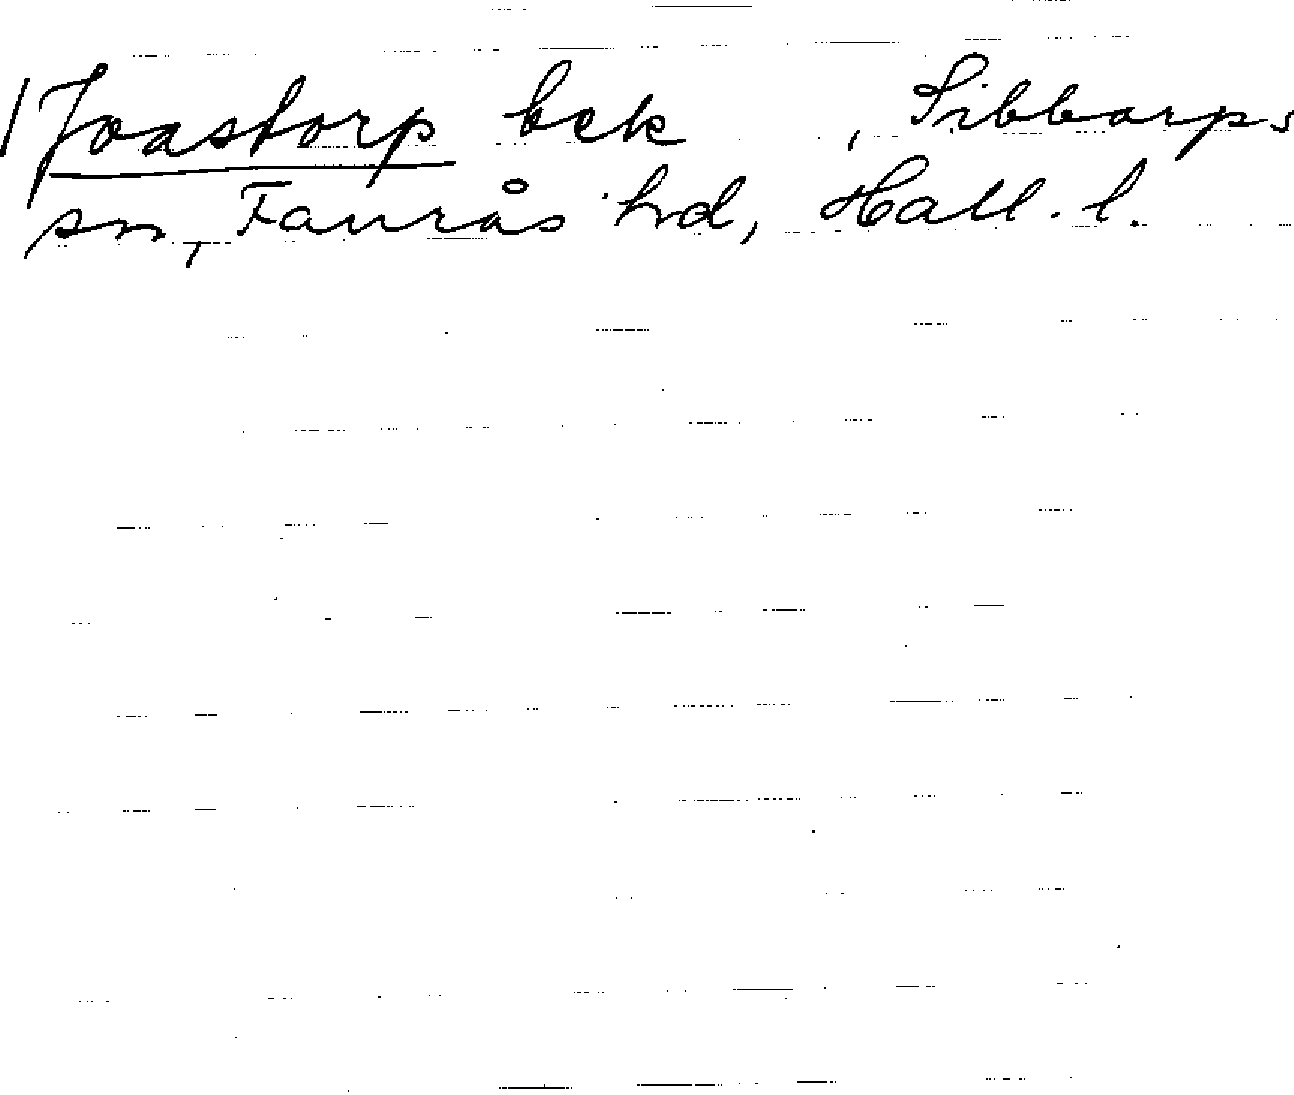 /Joastorp bek , Sibbarps
sn, Faurås hd, Hall. l.